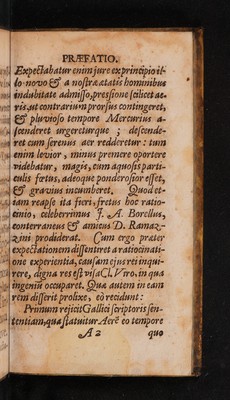 PRÆFATIO.
Expectabatur enim jure ex principio il-
lo novo & a nostræ ætatis hominibus
indubitate admisso, pressione scilicet aë-
ris, ut contrarium prorsus contingeret,
& pluvioso tempore Mercurius a-
scenderet urgereturque; descende-
ret cum serenus aer redderetur: tum
enim levior, minus premere oportere
videbatur, magis, cum aquosis parti-
culis fœtus, adeoque ponderosior esset,
& gravius incumberet. Quod et-
iam reapse ita fieri, fretus hoc ratio-
cinio, celeberrimus J. A. Borellus,
conterraneus & amicus D. Ramaz-
zini prodiderat. Cum ergo præter
expectationem dissentiret a ratiocinati-
one experientia, causam ejus rei inqui-
rere, digna res est visa Cl. Viro, in qua
ingeniū occuparet. Quæ autem in eam
rem disserit prolixe, eò recidunt:
Primum rejicit Gallici scriptoris sen-
tentiam, qua statuitur Aerē eo tempore
A 2 quo